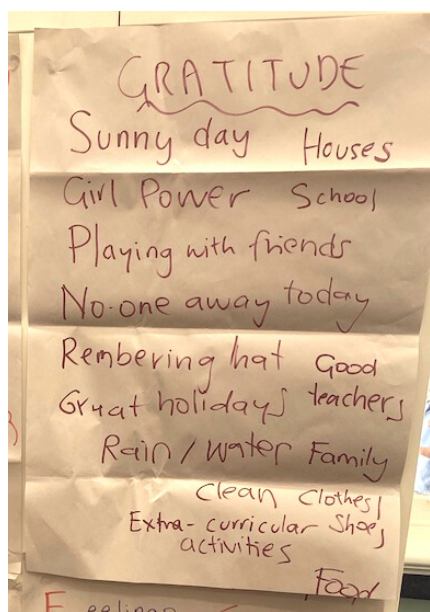 GRATITUDE
Sunny day Houses
Girl Power School
Playing with friends
No-one away today
Rembering hat Good
Great holidays teachers
Rain / water Family
Clean Clothes
Extra-curricular Shoes
activities
Food
Feelings